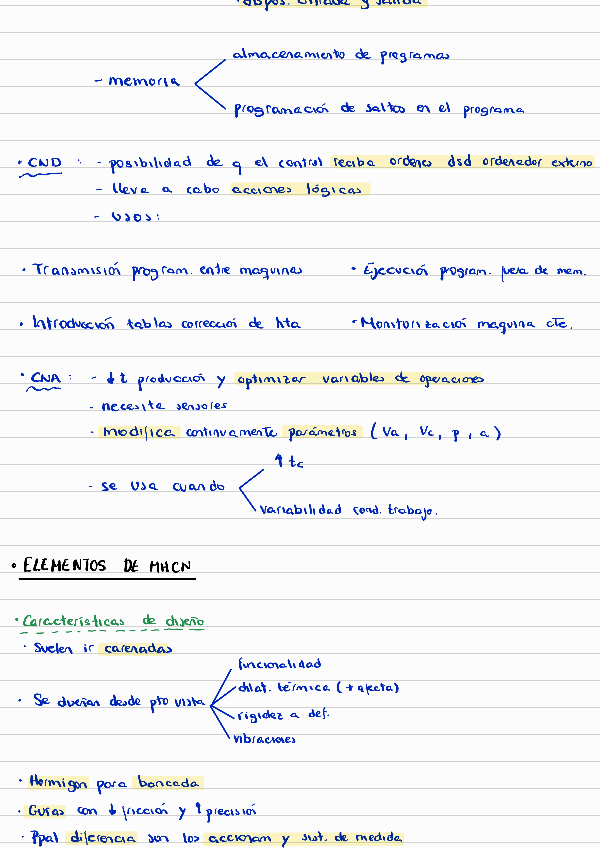 · dispos. entrada y salida
almacenamiento de programas
- memoria
programación de saltos en el programa
· CND : - posibilidad de q el control reciba ordenes dsd ordenador externo
- lleva a cabo acciones lógicas
- usos:
· Transmisión program. entre maquinas · Ejecución program. fuera de mem.
· Introducción tablas corrección de hta · Monitorización maquina etc.
· CNA : - ↓ t producción y optimizar variables de operaciones
- necesita sensores
- modifica continuamente parámetros (Va, Vc, p, a)
↑ tc
- se usa cuando
variabilidad cond. trabajo.
· ELEMENTOS DE MHCN
· Características de diseño
· Suelen ir carenadas
funcionalidad
dilat. térmica (+ afecta)
· Se diseñan desde pto vista
rigidez a def.
vibraciones
· Hormigon para bancada
· Guías con ↓ fricción y ↑ precisión
· Ppal diferencia son los accionam y sist. de medida